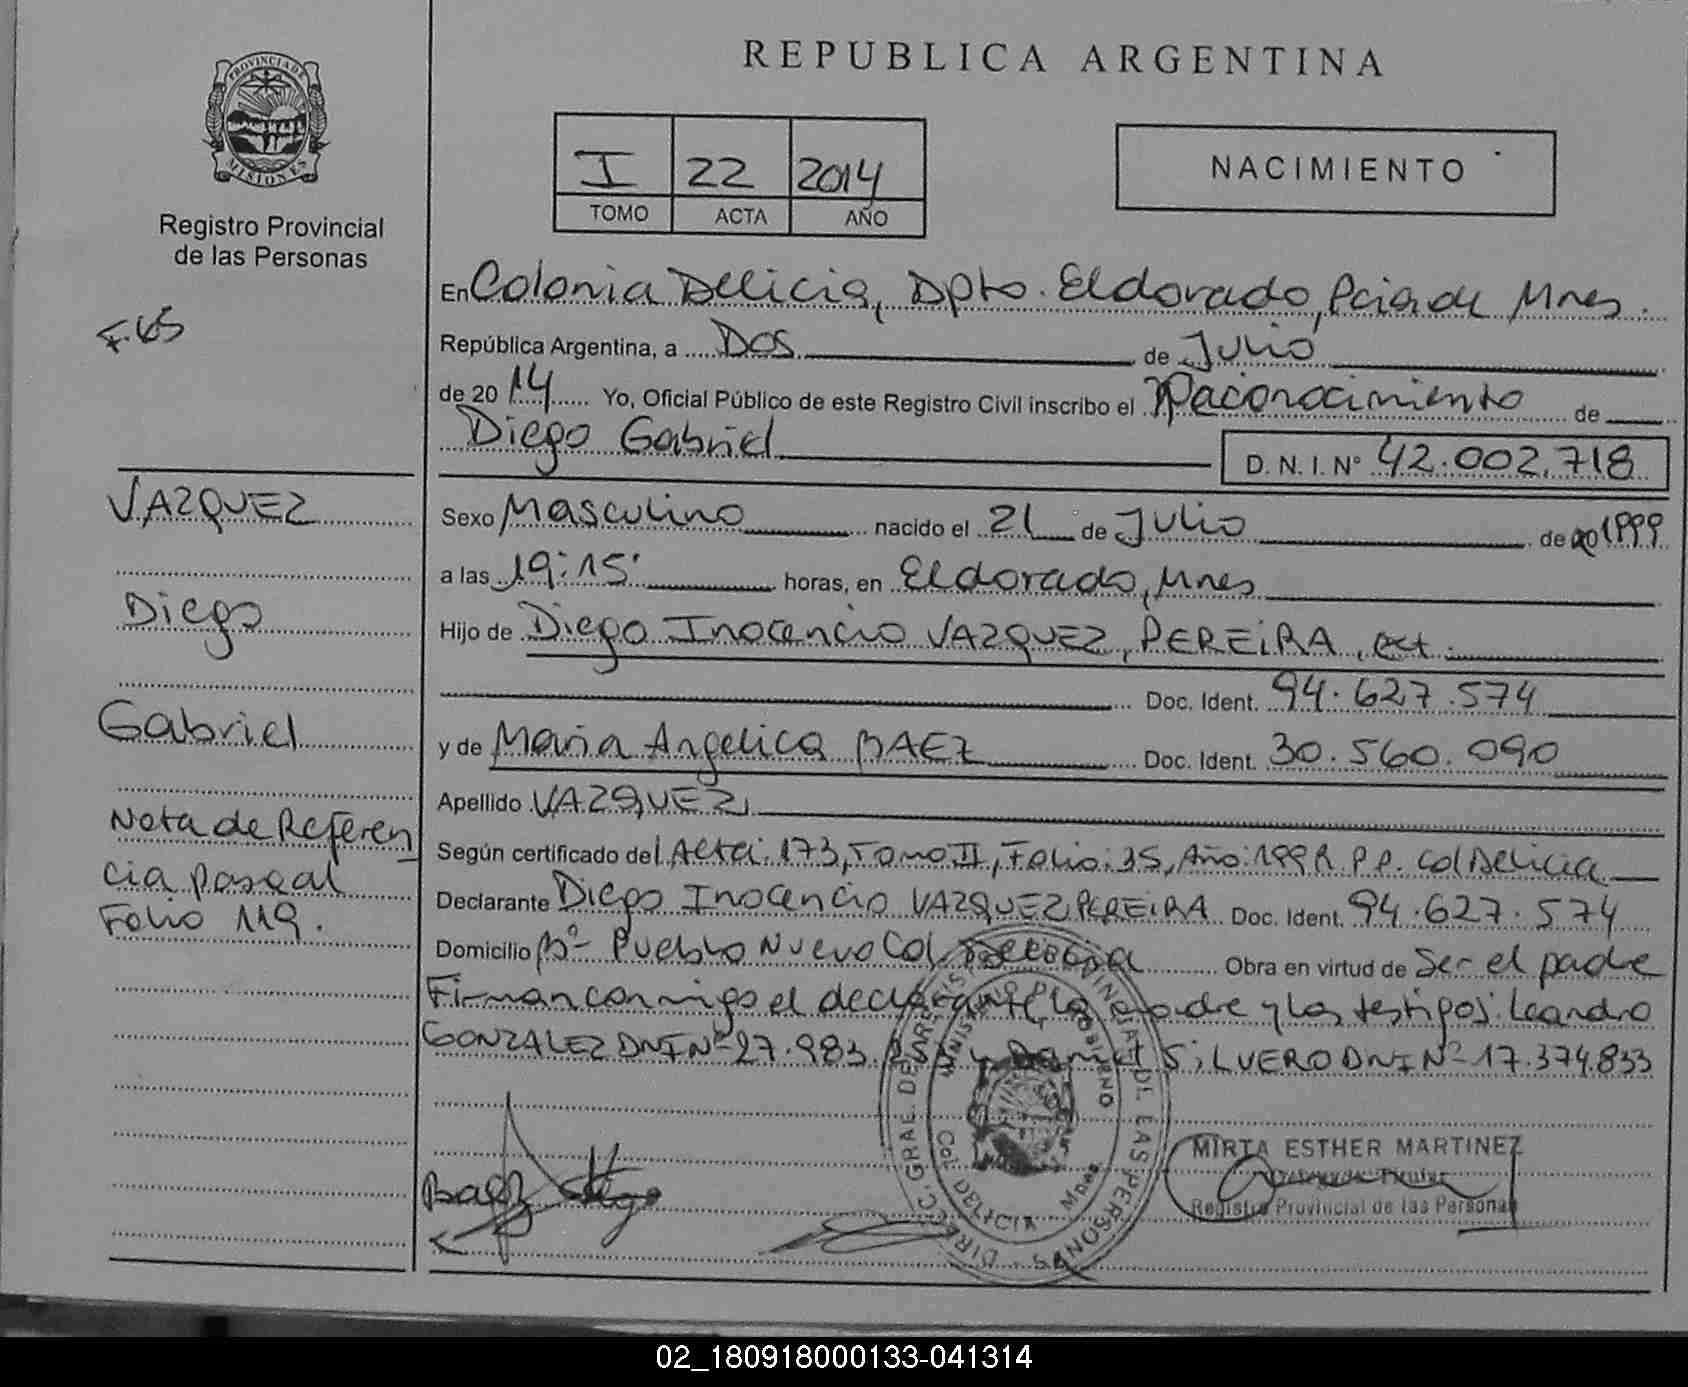 REPUBLICA ARGENTINA
PROVINCIA DE MISIONES
Registro Provincial
de las Personas
I 22 2014
TOMO ACTA AÑO
NACIMIENTO
F. 65
En Colonia Delicia, Dpto. Eldorado, Pcia de Mnes.
República Argentina, a Dos de Julio
de 2014 Yo, Oficial Público de este Registro Civil inscribo el Reconocimiento de
Diego Gabriel D. N. I. Nº 42.002.718
Sexo Masculino nacido el 21 de Julio de 1999
a las 19:15' horas, en Eldorado, Mnes
Hijo de Diego Inocencio VAZQUEZ, PEREIRA, ext.
Doc. Ident. 94.627.574
y de Maria Angelica BAEZ Doc. Ident. 30.560.090
Apellido VAZQUEZ
Según certificado del Acta: 173, Tomo II, Folio: 35, Año: Col Delicia
Declarante Diego Inocencio VAZQUEZ PEREIRA Doc. Ident. 94.627.574
Domicilio Bº Pueblo Nuevo Col. Delicia Obra en virtud de Ser el padre
Firman conmigo el declarante, la madre y los testigos: Leandro
GONZALEZ DNI Nº 27.983. y SILUERO DNI Nº 17.374.833
VAZQUEZ
Diego
Gabriel
Nota de Referen
cia pasa al
Folio 119.
Baez
DIRECC. GRAL. DE PROVINCIAL DE LAS PERSONAS
MINISTERIO DE GOBIERNO
Col. DELICIA Mnes.
MIRTA ESTHER MARTINEZ
Delegada Titular
Registro Provincial de las Personas
02_180918000133-041314